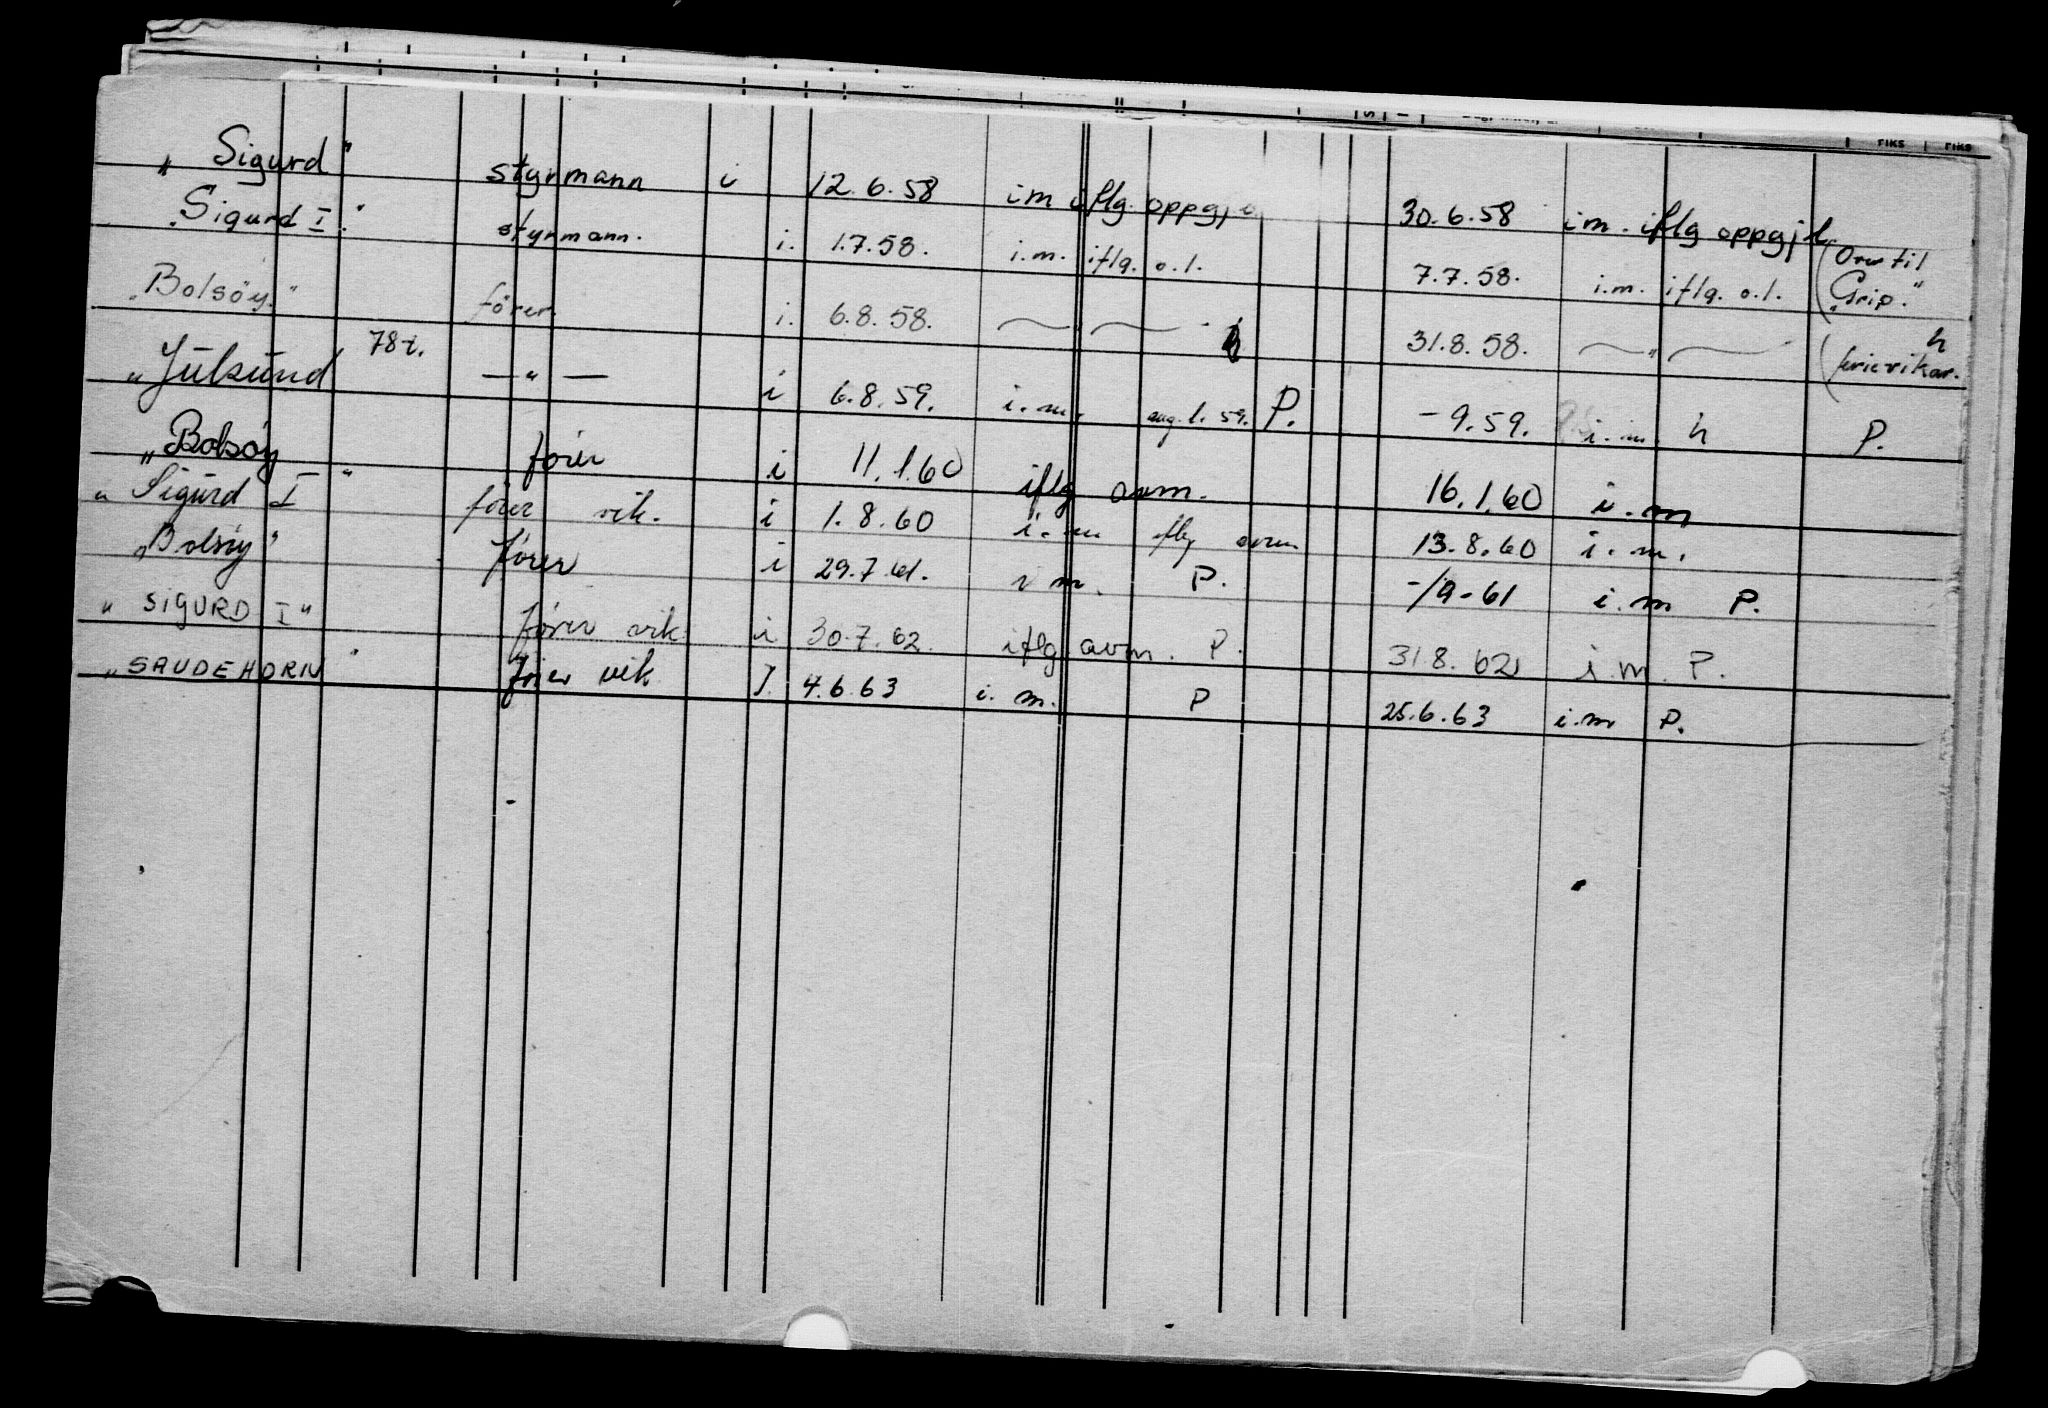 RIKS RIKS
„Sigurd" styrmann i 12.6.58 im iflg. oppgj 30.6.58 i m. iflg oppgjl.
„Sigurd I." styrmann. i. 1.7.58. i.m. iflg. o.l. 7.7.58. i.m. iflg. o.l. (Over til „Grip."
„Bolsöy." förer. i. 6.8.58. — — 31.8.58. — „ — h (ferievikar.
„Julsund 78t. — „ — i 6.8.59. i.m. aug.l. 59. P. -9.59. i.m. h P.
„Bolsöy förer i 11.1.60 iflg avm. 16.1.60 i.m
„Sigurd I" förer vik. i 1.8.60 i.m iflg avm 13.8.60 i.m.
„Bolsöy" förer i 29.7.61. i m. P. -/9-61 i.m P.
„SIGURD I" förer vik i 30.7.62. iflg avm. P. 31.8.62 i.m. P.
„SAUDEHORN" förer vik I. 4.6.63 i.m. P 25.6.63 i.m P.